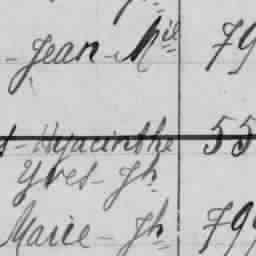 - Jean - Mel 79
- Hyacinthe 55
Yves - Jh
Marie - Jh 799